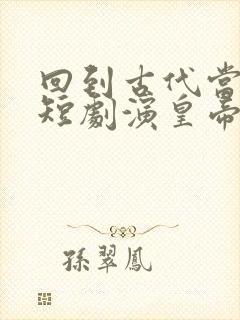 回到古代當
短劇演皇帝
孫翠鳳